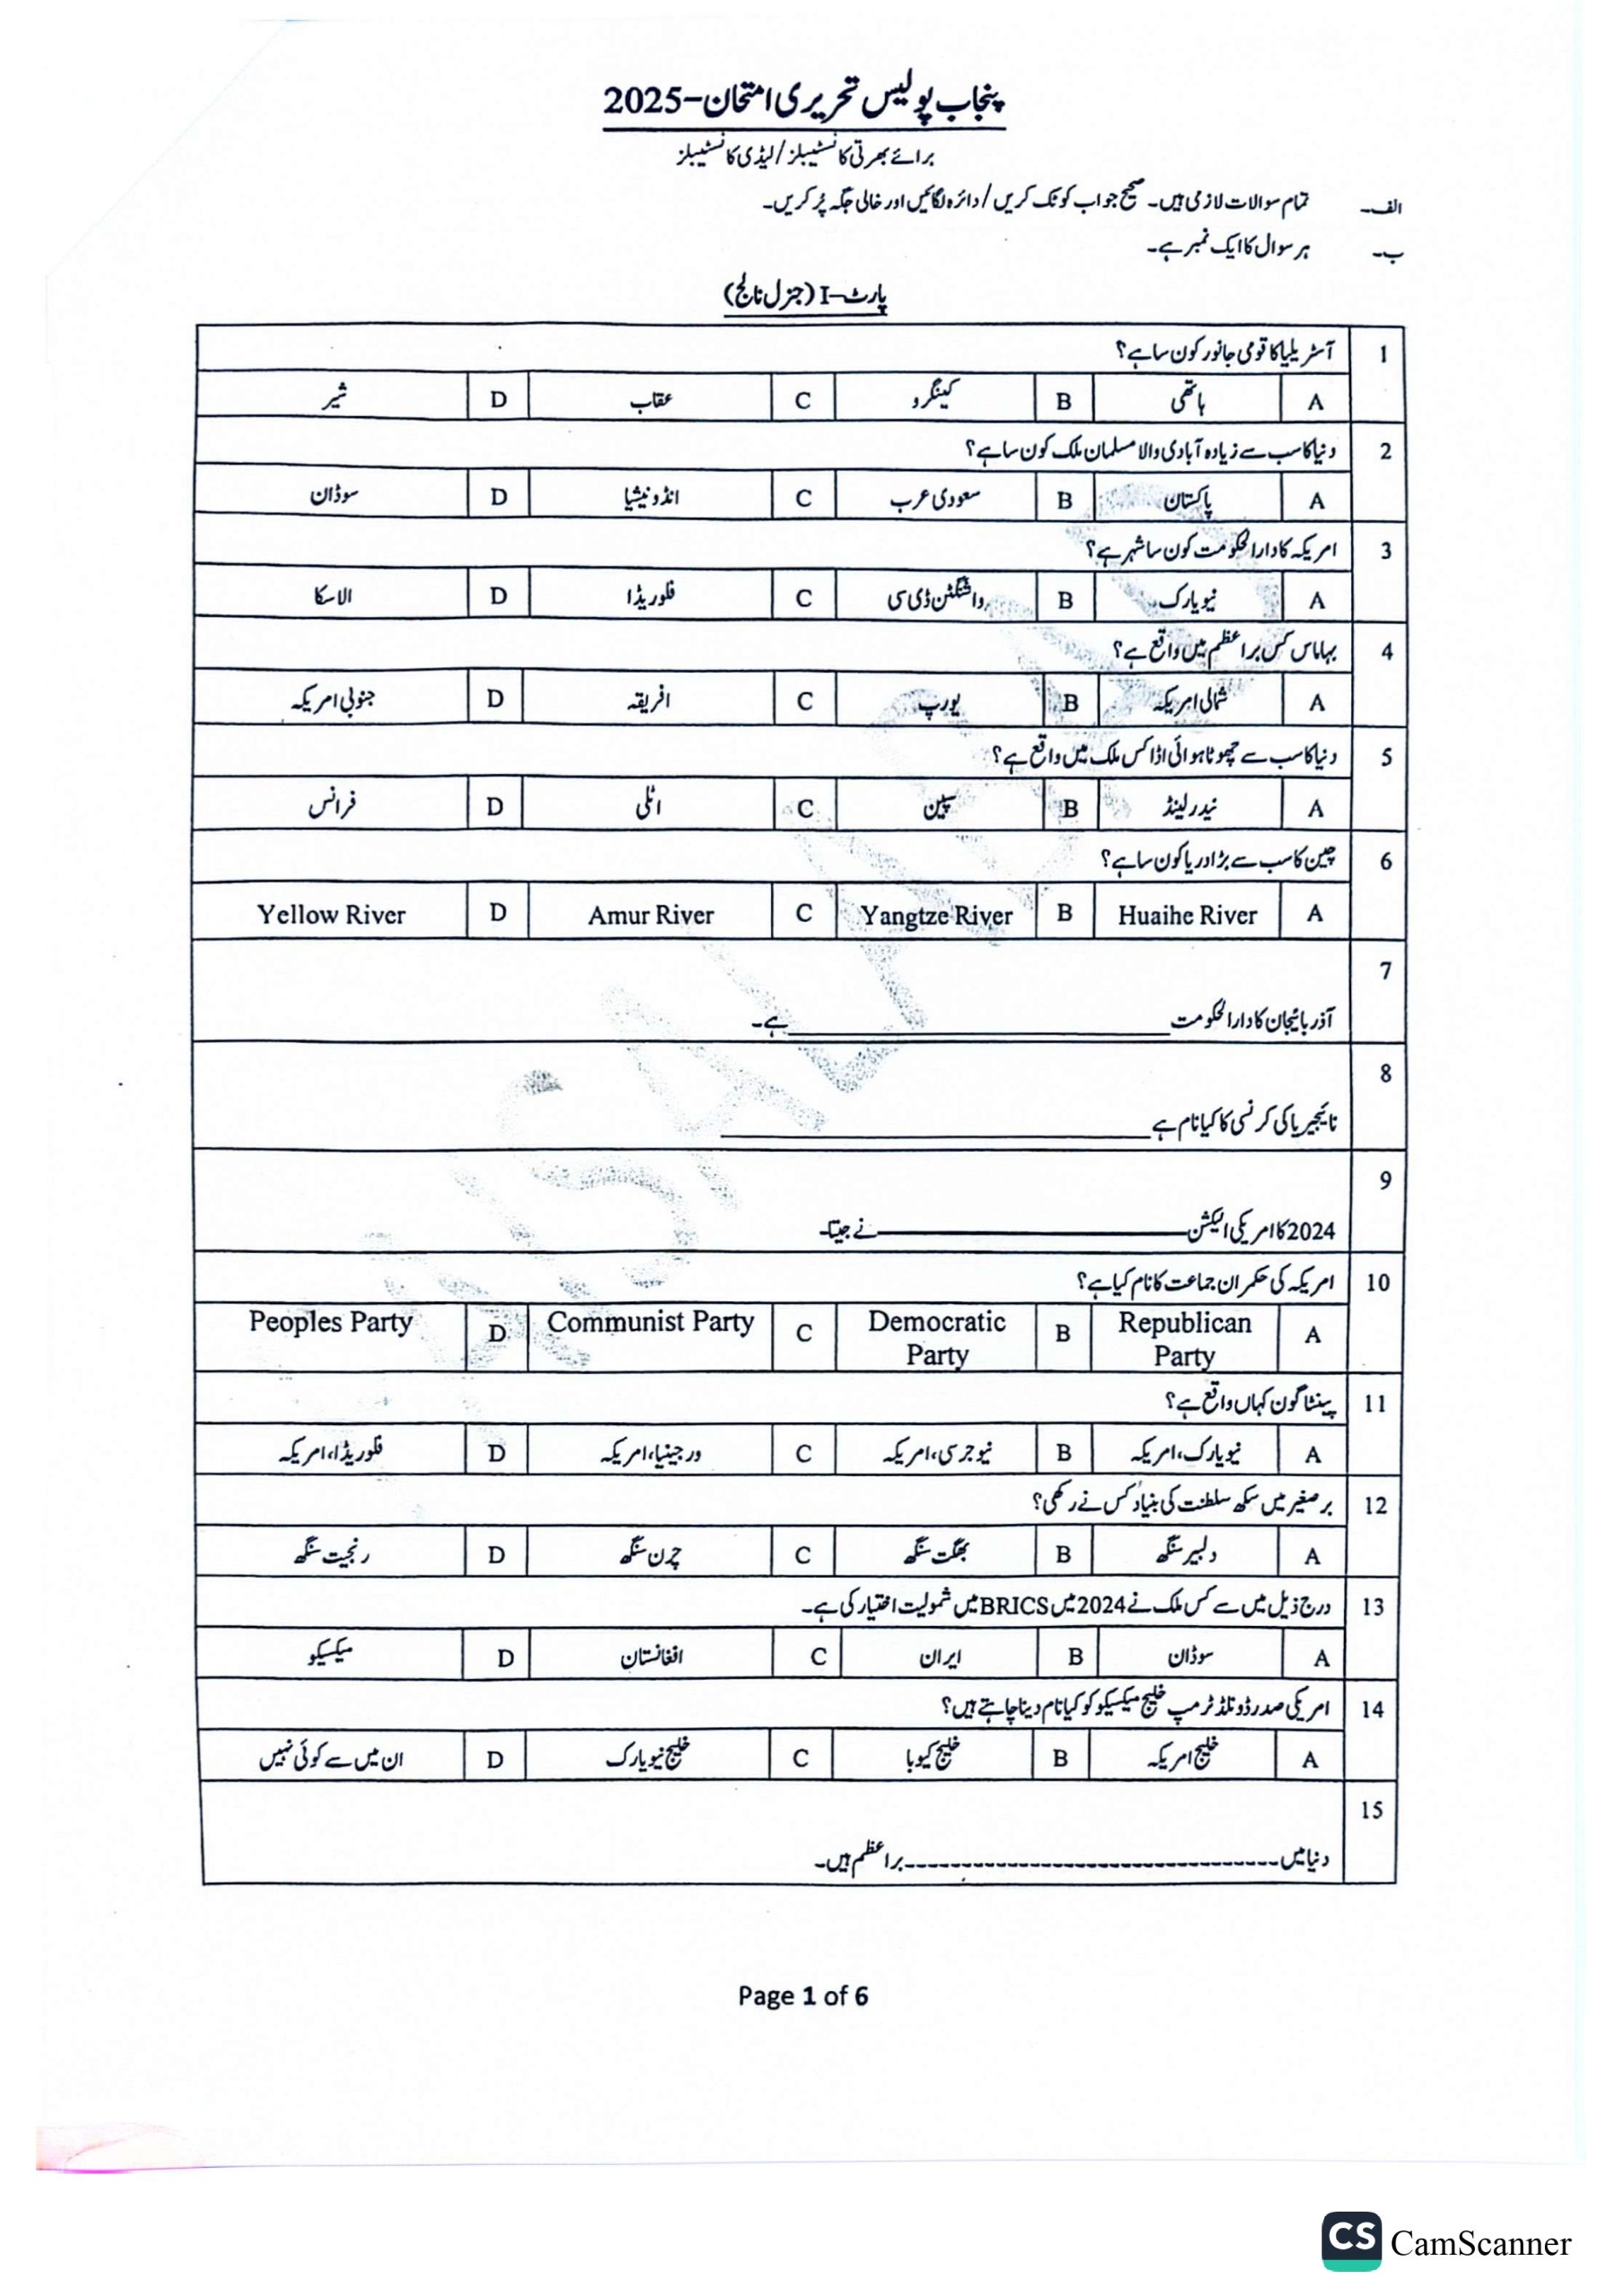 پنجاب پولیس تحریری امتحان-2025
برائے بھرتی کانسٹیبلز/لیڈی کانسٹیبلز
الف۔ تمام سوالات لازمی ہیں۔ صحیح جواب کو ٹک کریں/دائرہ لگائیں اور خالی جگہ پُر کریں۔
ب۔ ہر سوال کا ایک نمبر ہے۔
پارٹ-I (جنرل نالج)
1 آسٹریلیا کا قومی جانور کون سا ہے؟
A ہاتھی B کینگرو C عقاب D شیر
2 دنیا کا سب سے زیادہ آبادی والا مسلمان ملک کون سا ہے؟
A پاکستان B سعودی عرب C انڈونیشیا D سوڈان
3 امریکہ کا دارالحکومت کون سا شہر ہے؟
A نیویارک B واشنگٹن ڈی سی C فلوریڈا D الاسکا
4 بہاماس کس براعظم میں واقع ہے؟
A شمالی امریکہ B یورپ C افریقہ D جنوبی امریکہ
5 دنیا کا سب سے چھوٹا ہوائی اڈا کس ملک میں واقع ہے؟
A نیدرلینڈ B سپین C اٹلی D فرانس
6 چین کا سب سے بڑا دریا کون سا ہے؟
A Huaihe River B Yangtze River C Amur River D Yellow River
7
آذربائیجان کا دارالحکومت ____________________ ہے۔
8
نائیجیریا کی کرنسی کا کیا نام ہے ____________________
9
2024 کا امریکی الیکشن ____________________ نے جیتا۔
10 امریکہ کی حکمران جماعت کا نام کیا ہے؟
A Republican Party B Democratic Party C Communist Party D Peoples Party
11 پینٹاگون کہاں واقع ہے؟
A نیویارک، امریکہ B نیوجرسی، امریکہ C ورجینیا، امریکہ D فلوریڈا، امریکہ
12 برصغیر میں سکھ سلطنت کی بنیاد کس نے رکھی؟
A دلبیر سنگھ B بھگت سنگھ C چرن سنگھ D رنجیت سنگھ
13 درج ذیل میں سے کس ملک نے 2024 میں BRICS میں شمولیت اختیار کی ہے۔
A سوڈان B ایران C افغانستان D میکسیکو
14 امریکی صدر ڈونلڈ ٹرمپ خلیج میکسیکو کو کیا نام دینا چاہتے ہیں؟
A خلیج امریکہ B خلیج کیوبا C خلیج نیویارک D ان میں سے کوئی نہیں
15
دنیا میں -------------------- براعظم ہیں۔
Page 1 of 6
CS CamScanner